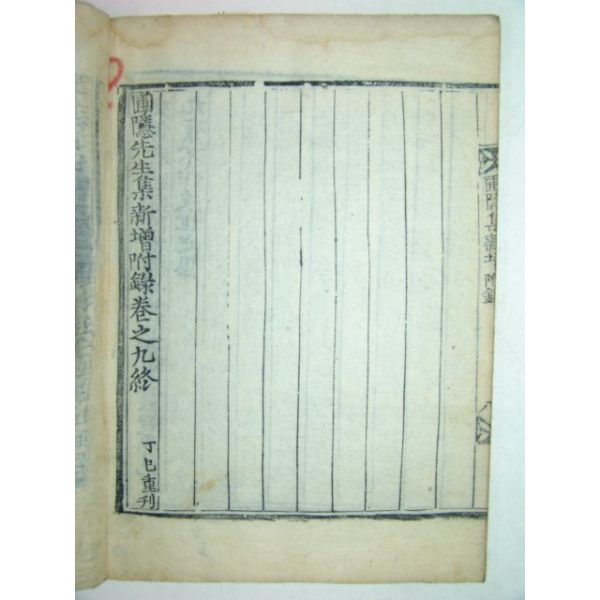 圃隱集新增 附錄
八
圃隱先生集新增附錄卷之九終
丁巳重刊